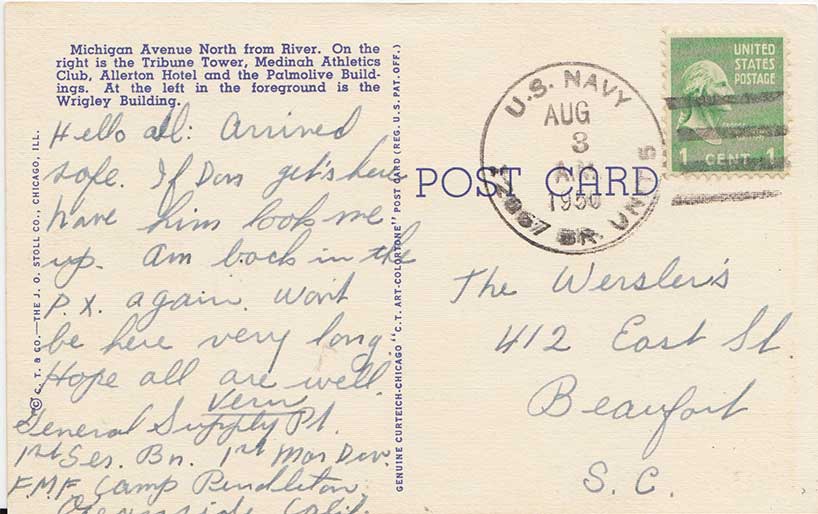 Michigan Avenue North from River. On the
right is the Tribune Tower, Medinah Athletics
Club, Allerton Hotel and the Palmolive Build-
ings. At the left in the foreground is the
Wrigley Building.
Hello all: Arrived
safe. If Don get's here
have him look me
up. Am back in the
P.X. again. Won't
be here very long.
Hope all are well.
Vern
General Supply Pt.
1st Ser. Bn. 1st Mar Div.
F.M.F. Camp Pendleton,
Oceanside Calif.
© C. T. & CO.—THE J. O. STOLL CO., CHICAGO, ILL.
GENUINE CURTEICH-CHICAGO "C.T. ART-COLORTONE" POST CARD (REG. U.S. PAT. OFF.)
POST CARD
U.S. NAVY
AUG
3
A.M.
1950
BR. UNIT
UNITED
STATES
POSTAGE
1 CENT 1
The Wersler's
412 East St
Beaufort
S. C.